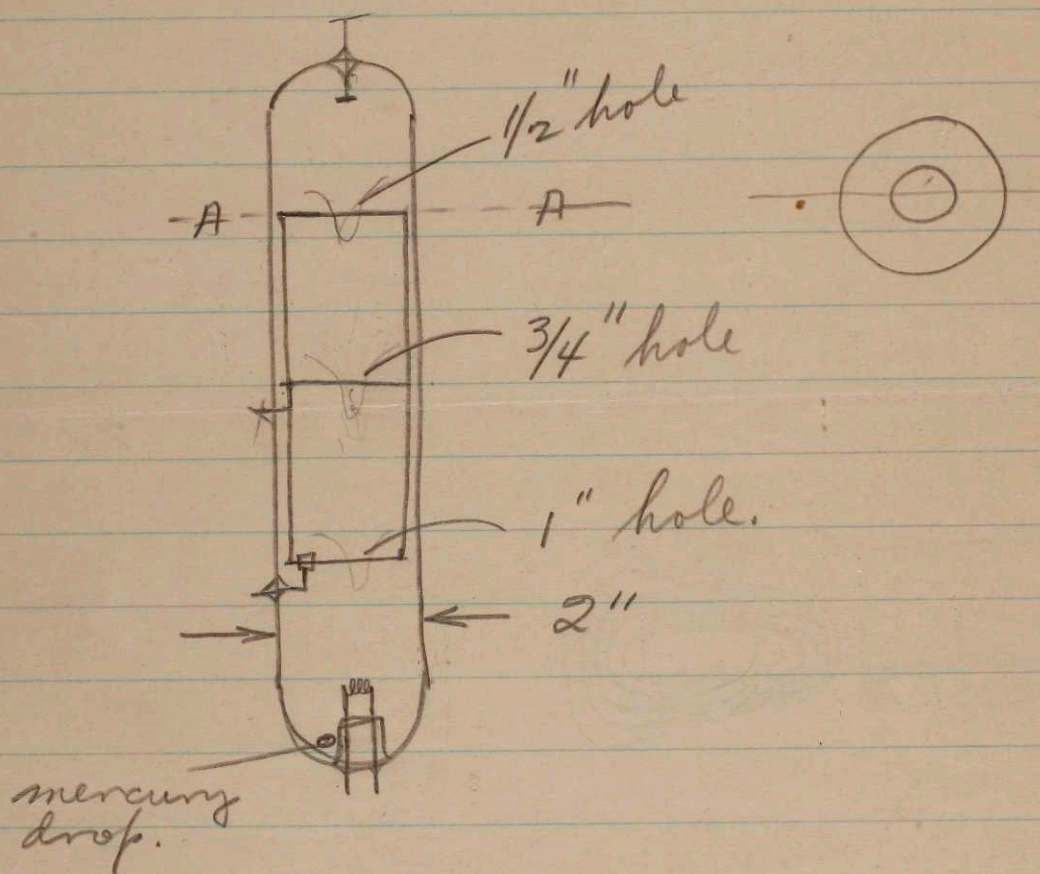 1/2" hole
A A
3/4" hole
1" hole.
2"
mercury
drop.